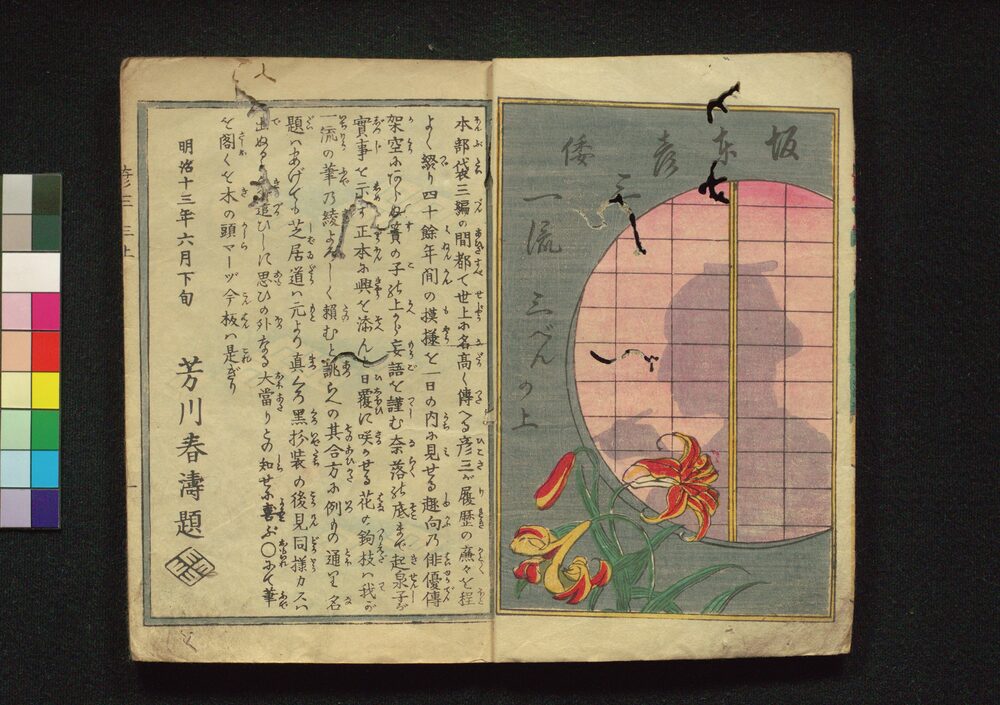 坂東彦
三倭
一流
三べんの上
本部袋三編の間都て世上に名高く傳へる彦三が履歴の廉々を程
よく綴り四十餘年間の摸様を一日の内に見せる趣向乃俳優傳
架空にあらぬ實の子の上から妄語を謹む奈落の底まで起泉子が
實事を示す正本に興を添んと日覆に咲かせる花の釣枝は我が
一流の筆乃綾よろしく頼むと誂らへの其合方に例もの通り名
題にあげても芝居道は元より真くろ黒衣装の後見同様カスに
出ぬる 道ひしに思ひの外なる大當りとの知せに喜ぶ〇にて筆
を閣くを木の頭マーヅ今板は是ぎり
明治十三年六月下旬
芳川春濤題
彦三 三上